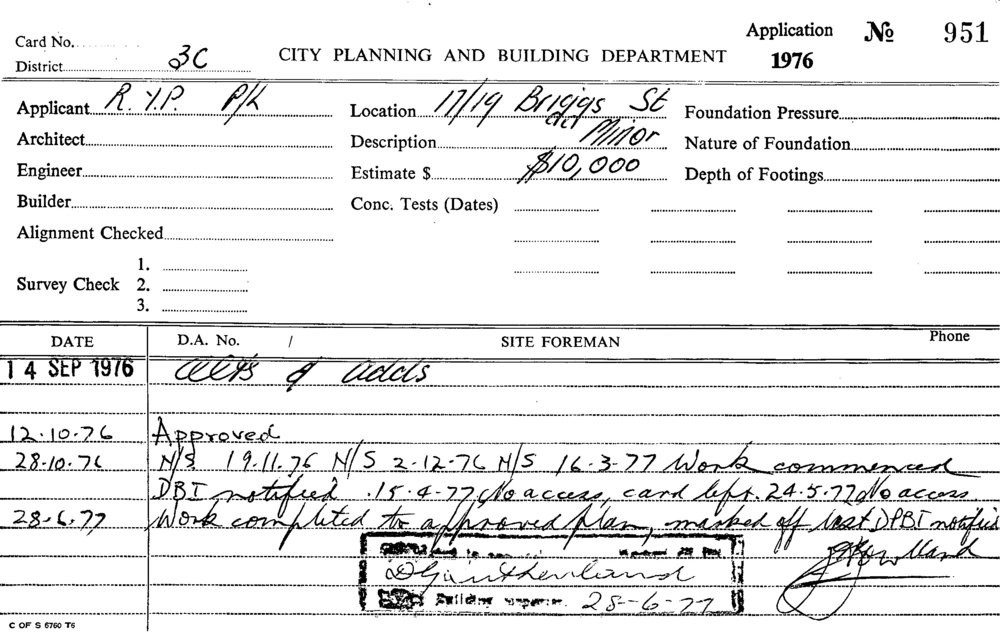 Application No 951
Card No.
District 3C
CITY PLANNING AND BUILDING DEPARTMENT
1976
Applicant R.Y.P. P/L
Location 17/19 Briggs St
Foundation Pressure
Architect
Description Minor
Nature of Foundation
Engineer
Estimate $ $10,000
Depth of Footings
Builder
Conc. Tests (Dates)
Alignment Checked
1.
Survey Check 2.
3.
DATE D.A. No. / SITE FOREMAN Phone
14 SEP 1976 Alts & adds
12.10.76 Approved
28.10.76 N/S 19.11.76 N/S 2-12-76 N/S 16-3-77 Work commenced
DBI notified. 15-4-77 No access, card left. 24-5-77 No access
28-6-77 Work completed to approved plan, marked off list DPBI notified
Building 28-6-77
C OF S 5760 T6